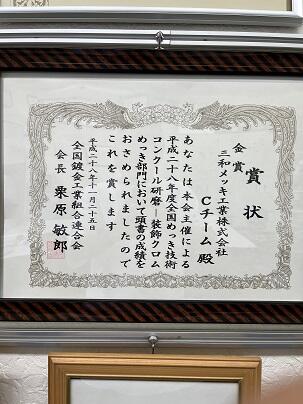 賞状
金賞
三和メッキ工業株式会社
Cチーム殿
あなたは本会主催による
平成二十八年度全国めっき技術
コンクール研磨―装飾クロム
めっき部門において頭書の成績を
おさめられましたので
これを賞します
平成二十八年十一月二十五日
全国鍍金工業組合連合会
会長 栗原敏郎